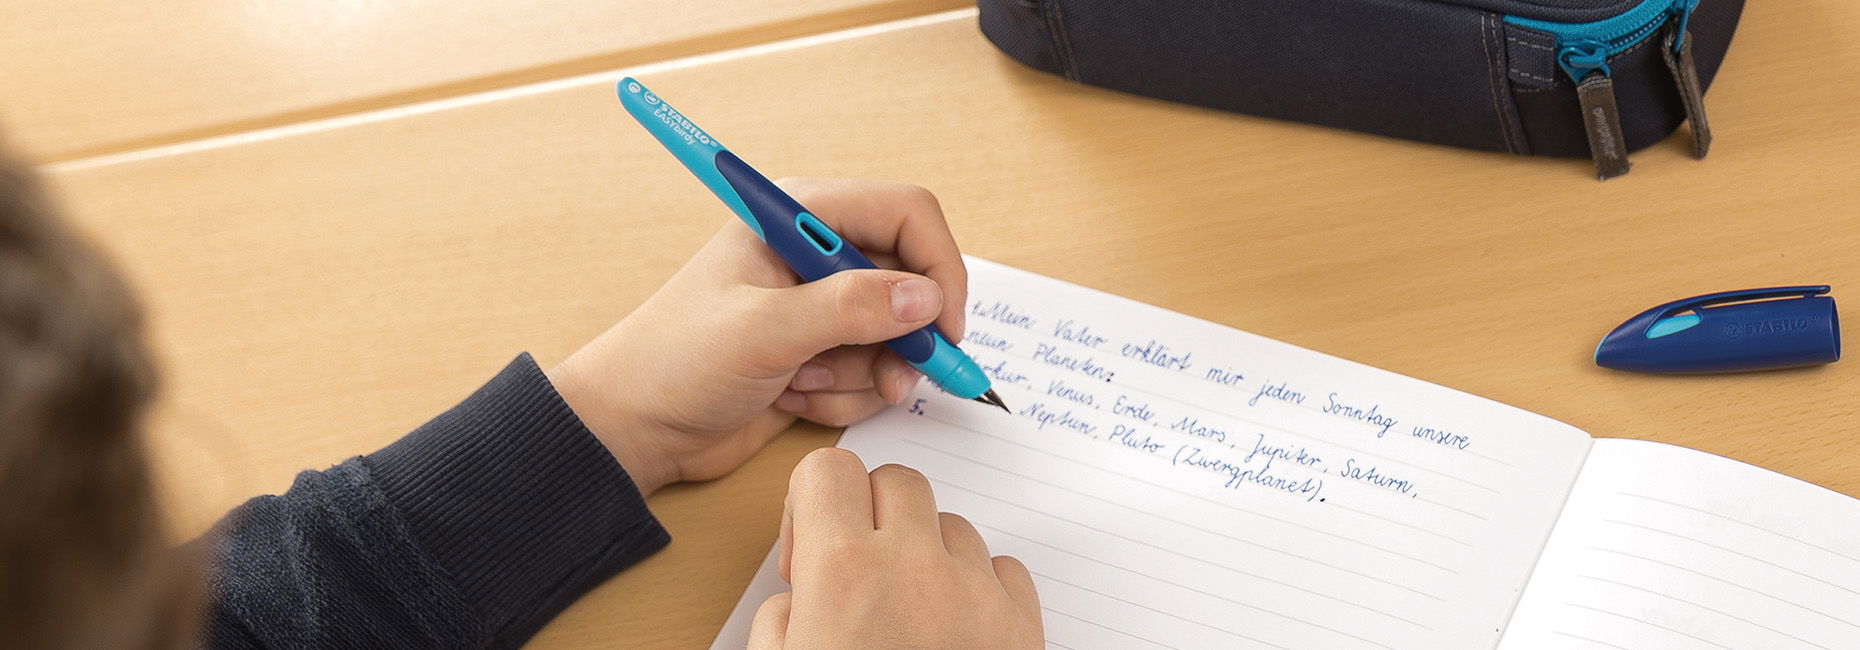 STABILO
EASYbirdy
Mein Vater erklärt mir jeden Sonntag unsere
neun Planeten:
Venus, Erde, Mars, Jupiter, Saturn,
Neptun, Pluto (Zwergplanet).
5.
STABILO